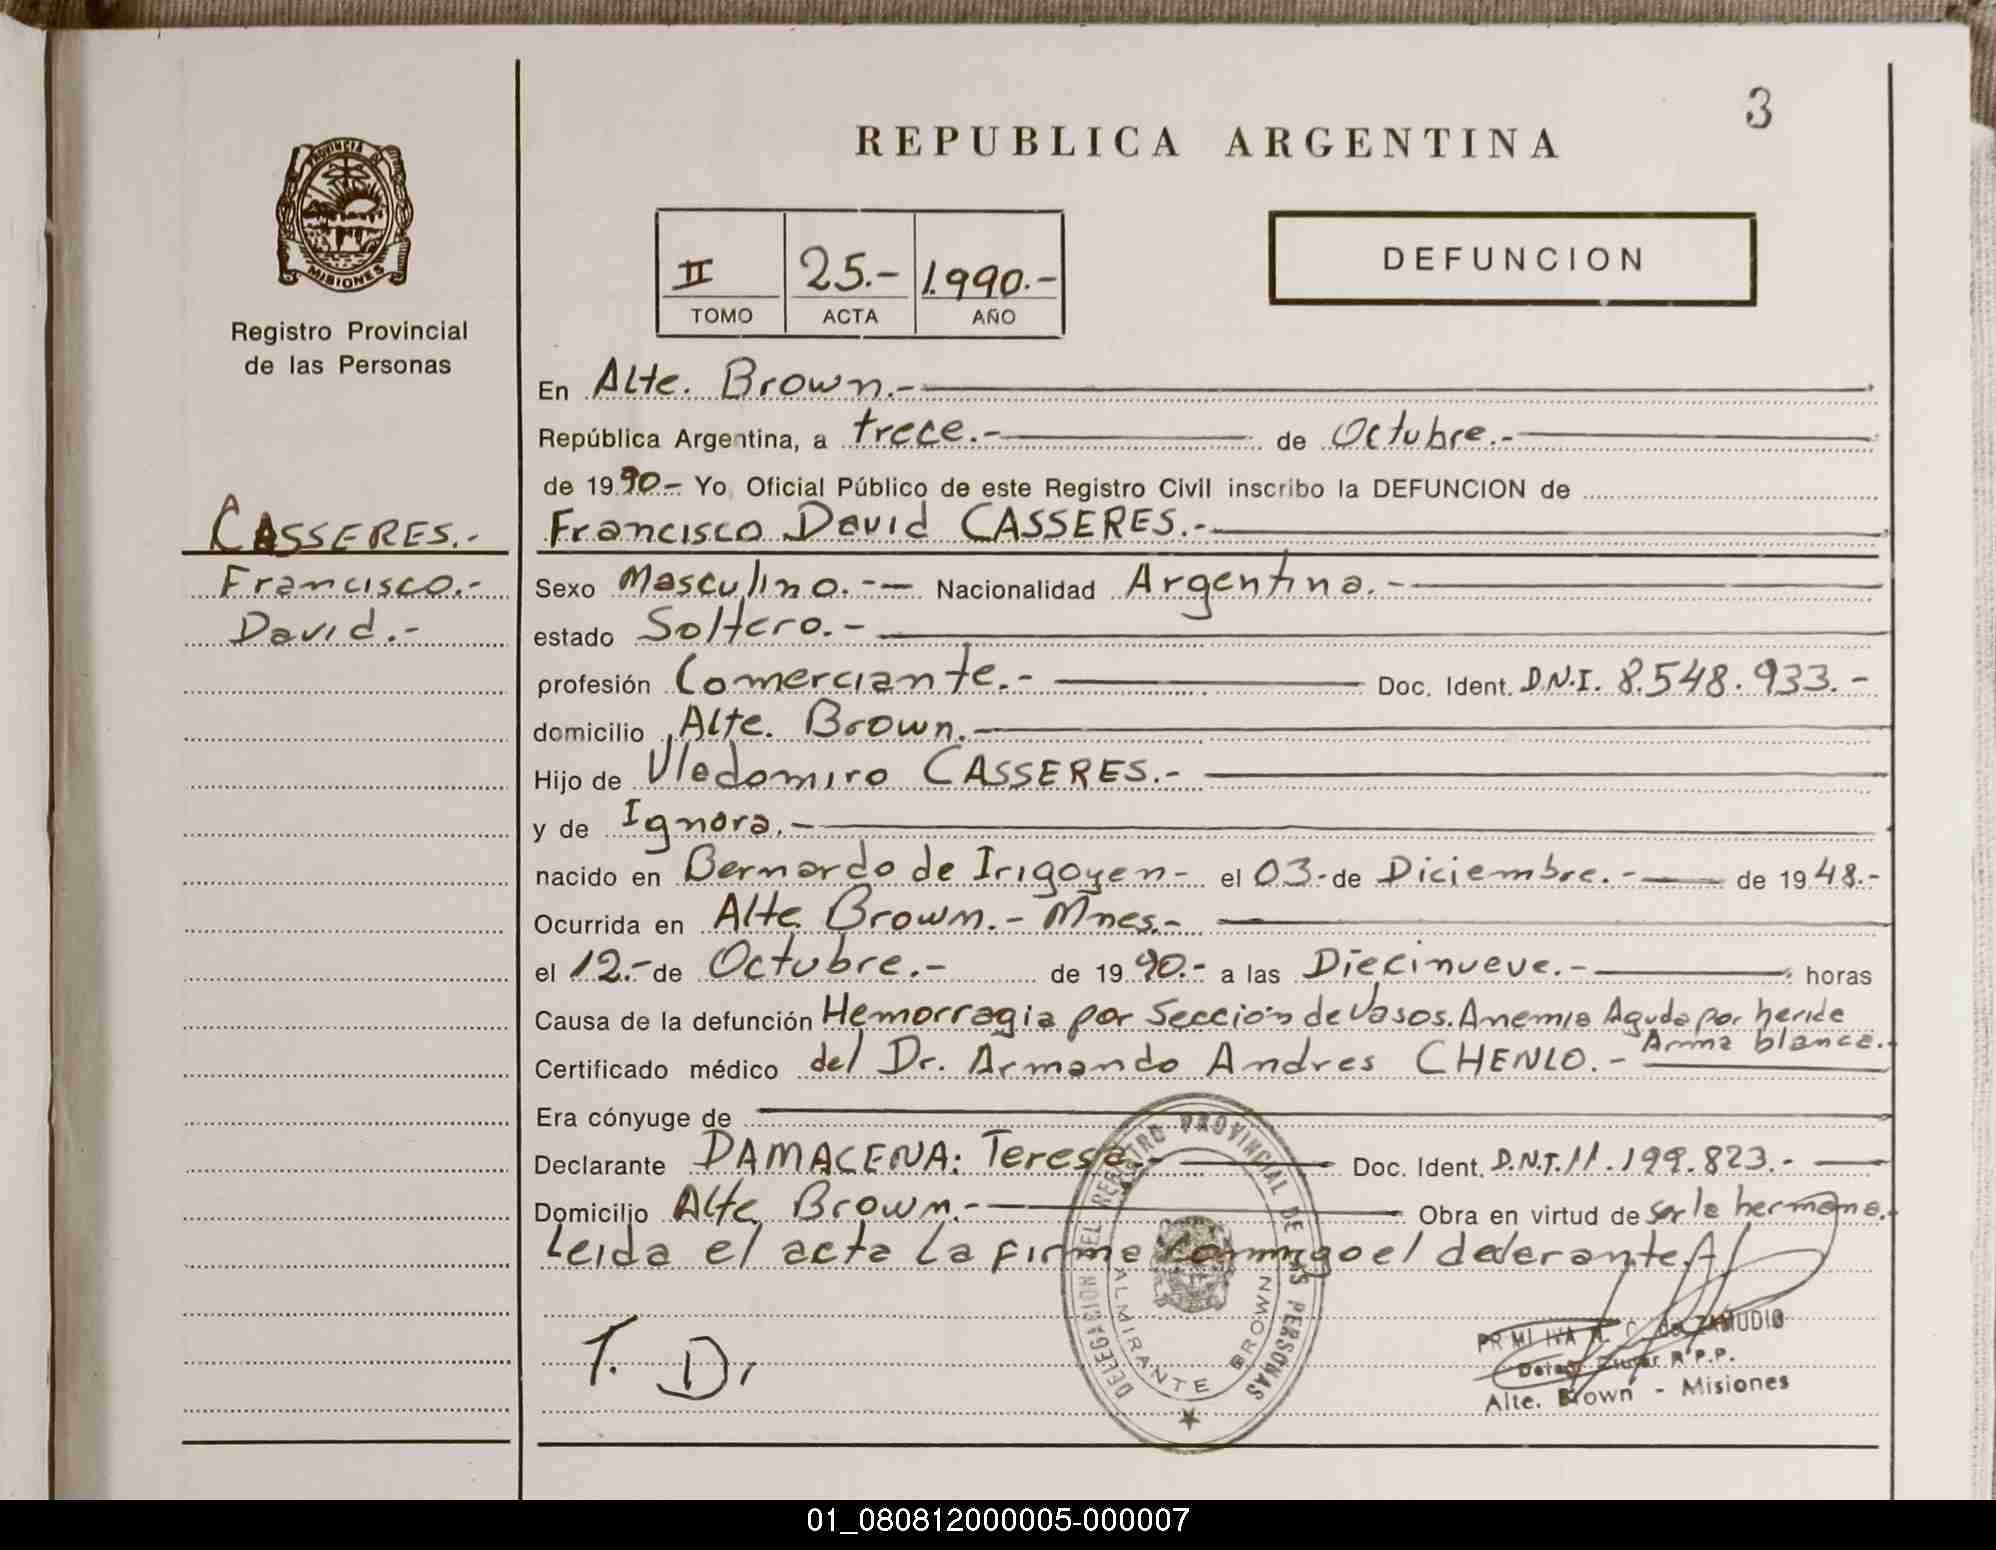 3
REPUBLICA ARGENTINA
PROVINCIA DE
MISIONES
Registro Provincial
de las Personas
II 25.- 1.990.-
TOMO ACTA AÑO
DEFUNCION
CASSERES.-
Francisco.-
David.-
En Alte. Brown.-
República Argentina, a trece.- de Octubre.-
de 1990.- Yo, Oficial Público de este Registro Civil inscribo la DEFUNCION de
Francisco David CASSERES.-
Sexo Masculino.- Nacionalidad Argentina.-
estado Soltero.-
profesión Comerciante.- Doc. Ident. D.N.I. 8.548.933.-
domicilio Alte. Brown.-
Hijo de Vledomiro CASSERES.-
y de Ignora.-
nacido en Bernardo de Irigoyen- el 03.- de Diciembre.- de 1948.-
Ocurrida en Alte. Brown.- Mnes.-
el 12.- de Octubre.- de 1990.- a las Diecinueve.- horas
Causa de la defunción Hemorragia por Sección de Vasos. Anemia Aguda por heride
Arma blanca.-
Certificado médico del Dr. Armando Andres CHENLO.-
Era cónyuge de
Declarante DAMACENA: Teresa.- Doc. Ident. D.N.I. 11.199.823.-
Domicilio Alte. Brown.- Obra en virtud de ser la hermana.-
Leida el acta la firma conmigo el declarante.
T. D.
DELEGACION DEL REGISTRO PROVINCIAL DE LAS PERSONAS
ALMIRANTE BROWN
ZAMUDIO
R.P.P.
Alte. Brown - Misiones
01_080812000005-000007